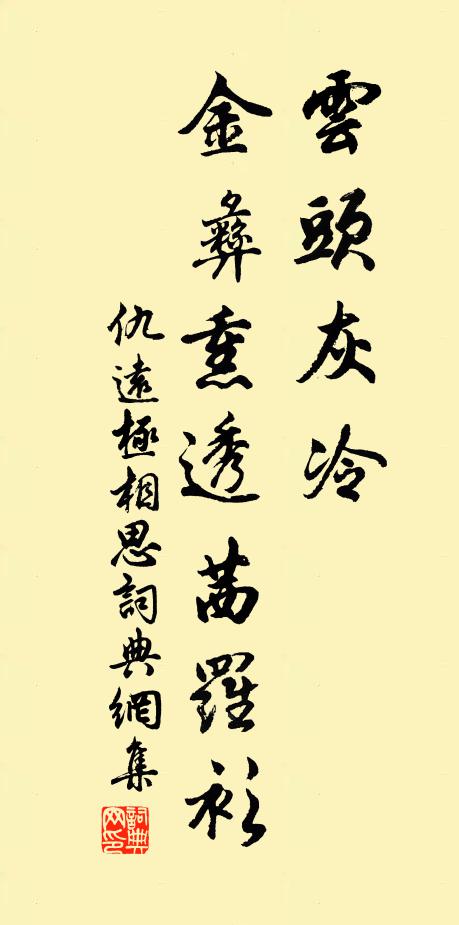 雲頭灰冷
金彝熏透茜羅衫
仇遠極相思詞典網集
詞典網印